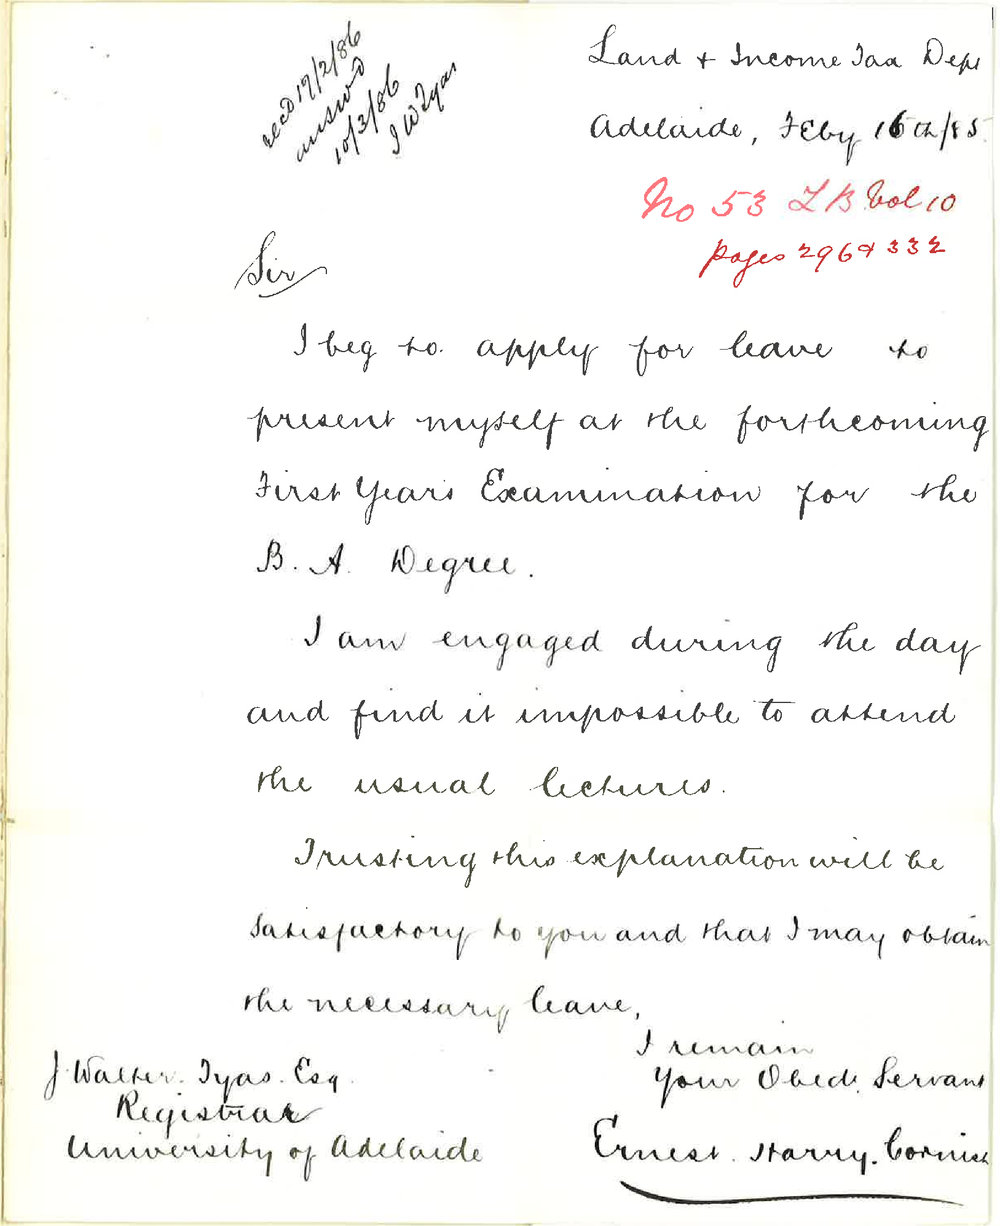 recd 17/2/86
answd
10/3/86
J W Tyas
Land & Income Tax Dept
Adelaide, FEby 16th/85
No 53 LB Vol 10
pages 296 & 332
Sir
I beg to apply for leave to
present myself at the forthcoming
First Years Examination for the
B. A. Degree.
I am engaged during the day
and find it impossible to attend
the usual lectures.
Trusting this explanation will be
satisfactory to you and that I may obtain
the necessary leave,
I remain
Your Obedt. Servant
Ernest. Harry. Cornish
J. Walter. Tyas. Esq.
Registrar
University of Adelaide